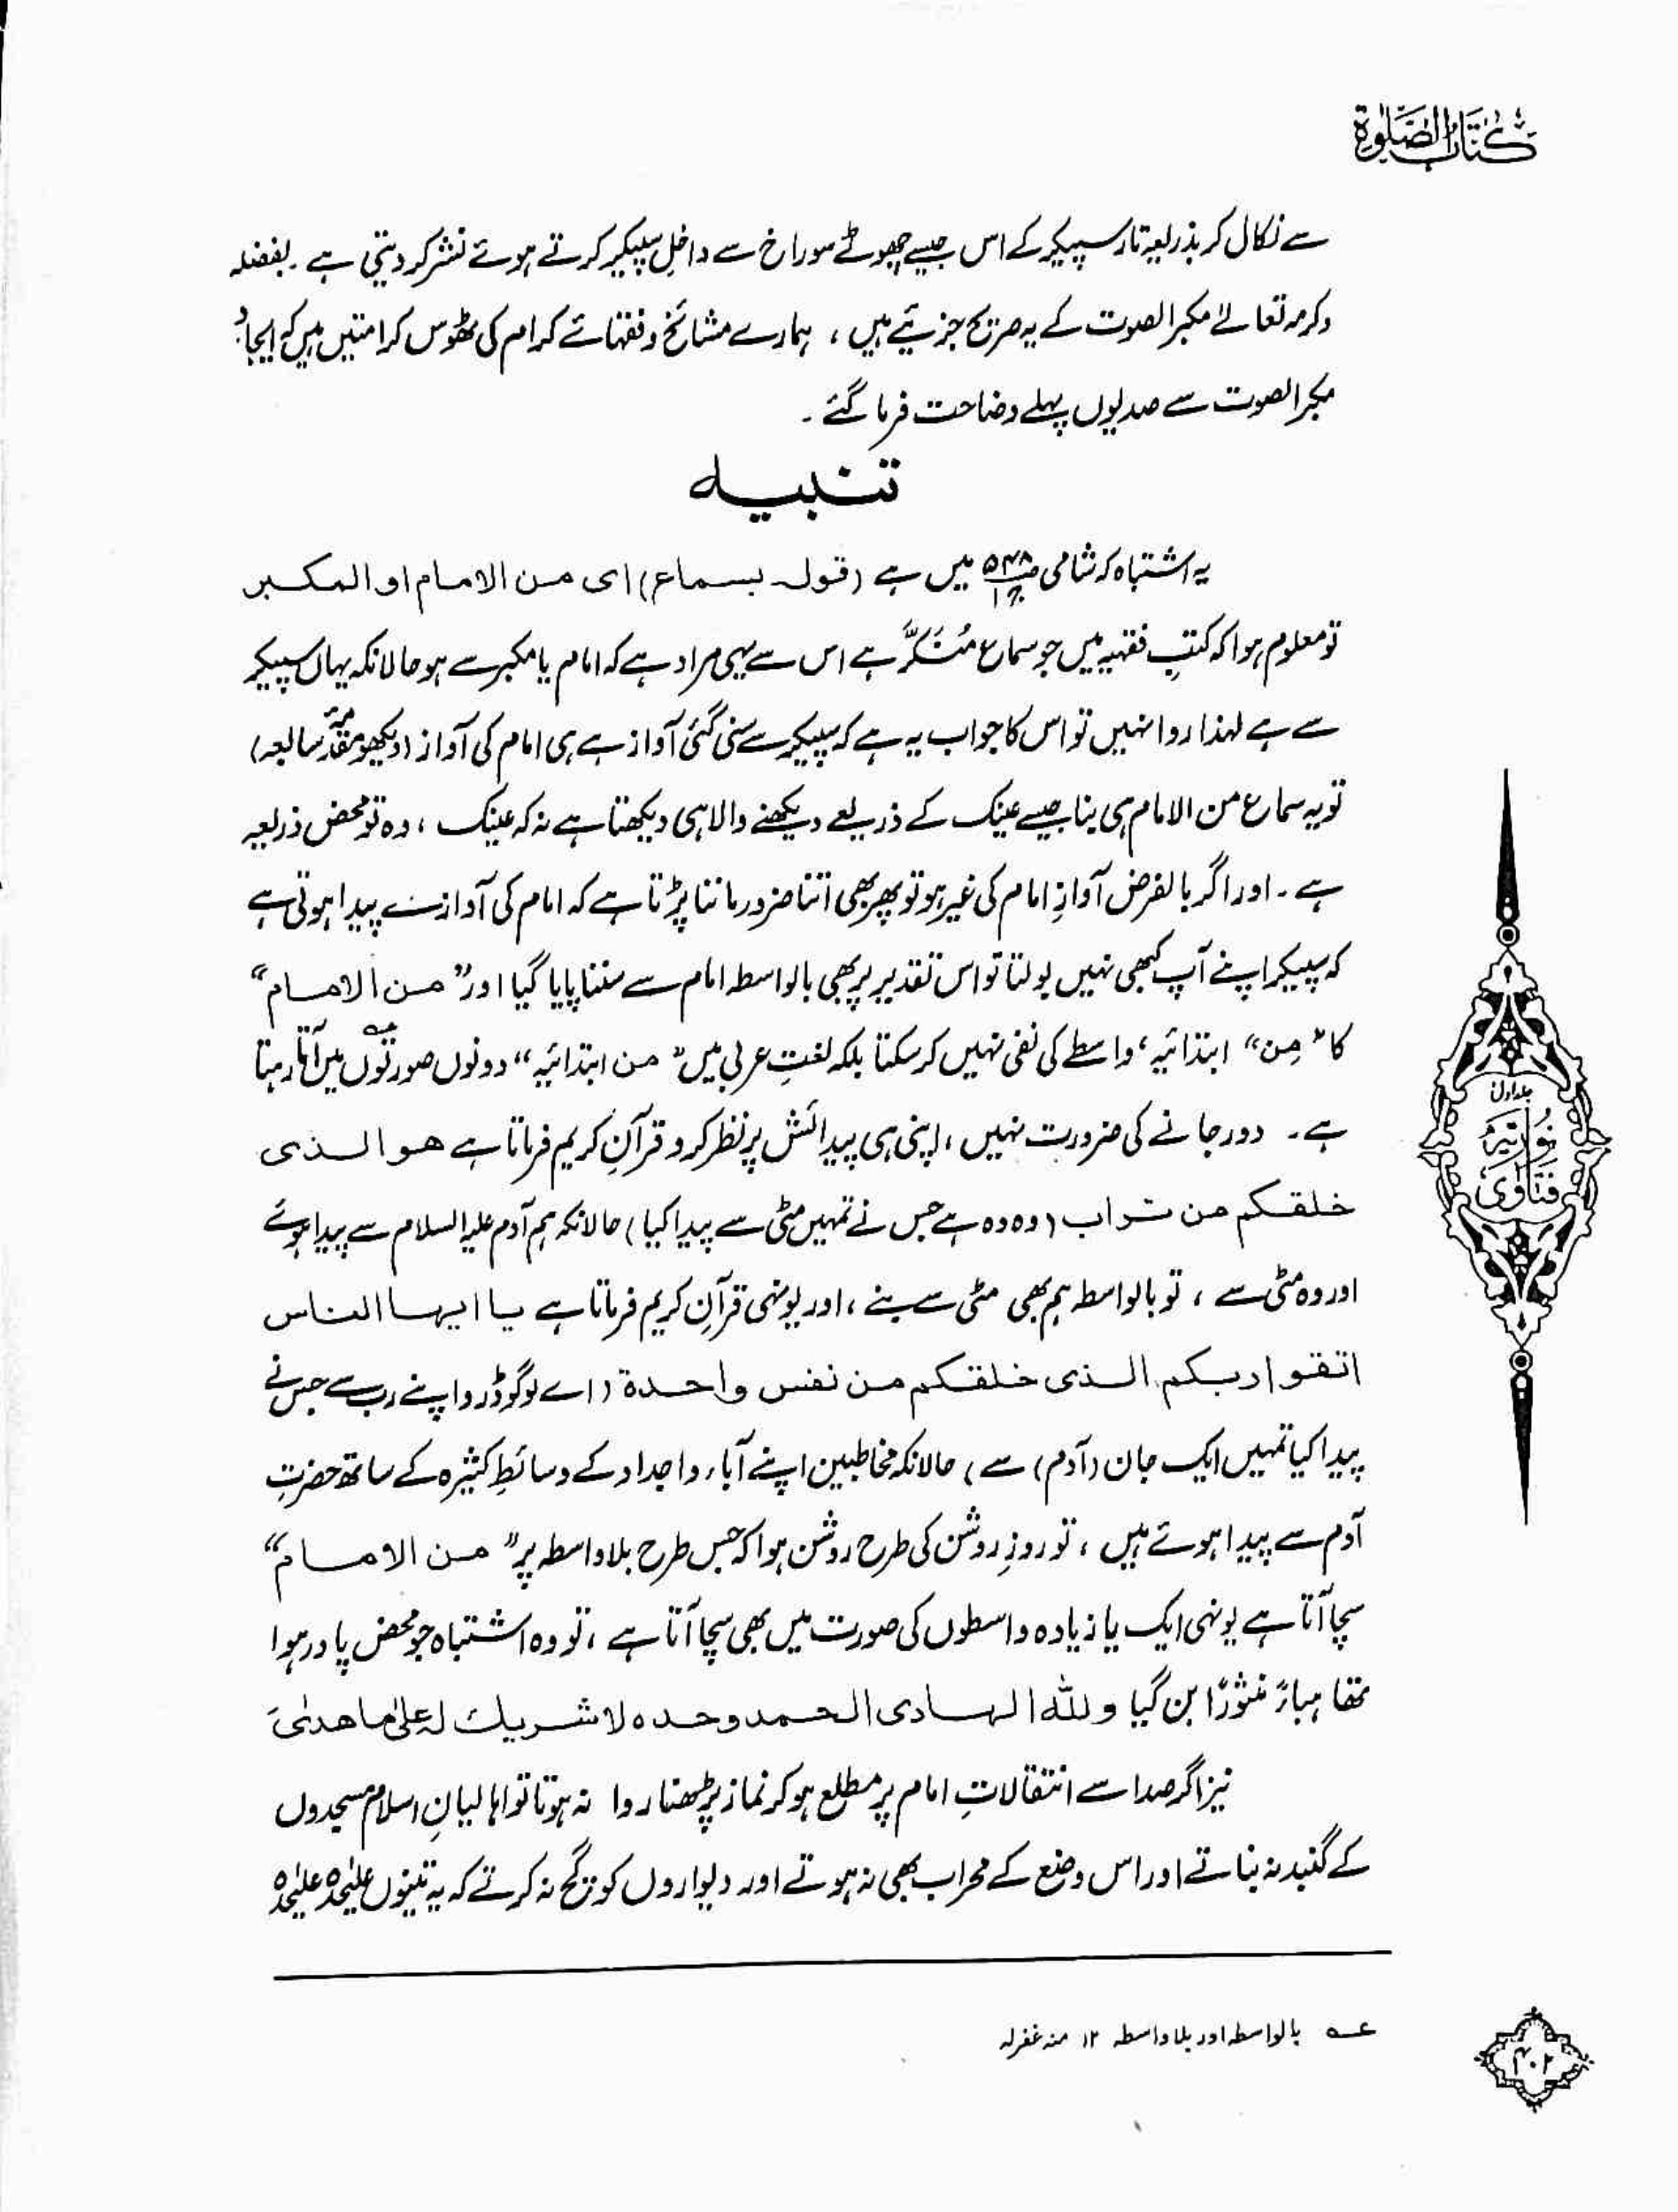 كتاب الصلوة
سے نکال کر بذریعہ تار سپیکر کے اس جیسے چھوٹے سوراخ سے داخلِ سپیکر کرتے ہوئے نشر کر دیتی ہے۔ بفضلہ
وکرمہ تعالےٰ مکبر الصوت کے یہ صریح جزئیے ہیں ، ہمارے مشائخ و فقہائے کرام کی ٹھوس کرامتیں ہیں کہ ایجادِ
مکبر الصوت سے صدیوں پہلے وضاحت فرما گئے ۔
تنبیہ
یہ اشتباہ کہ شامی ص۵۴۸ ج۱ میں ہے (قولہ بسماع) ای من الامام او المکبر
تو معلوم ہوا کہ کتبِ فقہیہ میں جو سماع مُنَکَّر ہے اس سے یہی مراد ہے کہ امام یا مکبر سے ہو حالانکہ یہاں سپیکر
سے ہے لہٰذا روا نہیں تو اس کا جواب یہ ہے کہ سپیکر سے سنی گئی آواز ہے ہی امام کی آواز (دیکھو مقدمۂ سالعہ)
تو یہ سماع من الامام ہی بنا جیسے عینک کے ذریعے دیکھنے والا ہی دیکھتا ہے نہ کہ عینک ، وہ تو محض ذریعہ
ہے ۔ اور اگر بالفرض آوازِ امام کی غیر ہو تو پھر بھی اتنا ضرور ماننا پڑتا ہے کہ امام کی آواز سے پیدا ہوتی ہے
کہ سپیکر اپنے آپ کبھی نہیں بولتا تو اس تقدیر پر بھی بالواسطہ امام سے سننا پایا گیا اور ”من الامام“
کا ”مِن“ ابتدائیہ ، واسطے کی نفی نہیں کر سکتا بلکہ لغتِ عربی میں ”من ابتدائیہ“ دونوں صورتوں عـہ میں آتا رہتا
ہے ۔ دور جانے کی ضرورت نہیں ، اپنی ہی پیدائش پر نظر کرو قرآنِ کریم فرماتا ہے ھو الذی
خلقکم من تراب (وہ وہ ہے جس نے تمہیں مٹی سے پیدا کیا) حالانکہ ہم آدم علیہ السلام سے پیدا ہوئے
اور وہ مٹی سے ، تو بالواسطہ ہم بھی مٹی سے بنے ، اور یونہی قرآنِ کریم فرماتا ہے یا ایہا الناس
اتقوا ربکم الذی خلقکم من نفس واحدة (اے لوگو ڈرو اپنے رب سے جس نے
پیدا کیا تمہیں ایک جان (آدم) سے) حالانکہ مخاطبین اپنے آباء و اجداد کے وسائطِ کثیرہ کے ساتھ حضرتِ
آدم سے پیدا ہوئے ہیں ، تو روزِ روشن کی طرح روشن ہوا کہ جس طرح بلاواسطہ پر ”من الامام“
سچا آتا ہے یونہی ایک یا زیادہ واسطوں کی صورت میں بھی سچا آتا ہے ، تو وہ اشتباہ جو محض پا در ہوا
تھا ہباءً منثورًا بن گیا و للہ الہادی الحمد وحدہ لا شریك لہ علیٰ ما ھدیٰ۔
نیز اگر صدا سے انتقالاتِ امام پر مطلع ہو کر نماز پڑھنا روا نہ ہوتا تو اہالیانِ اسلام مسجدوں
کے گنبد نہ بناتے اور اس وضع کے محراب بھی نہ ہوتے اور دیواروں کو گچ نہ کرتے کہ یہ تینوں علیٰحدہ علیٰحدہ
عـہ بالواسطہ اور بلاواسطہ ۱۲ منہ غفرلہ
جلد اول
نوریہ
فتاوی
۴۰۲